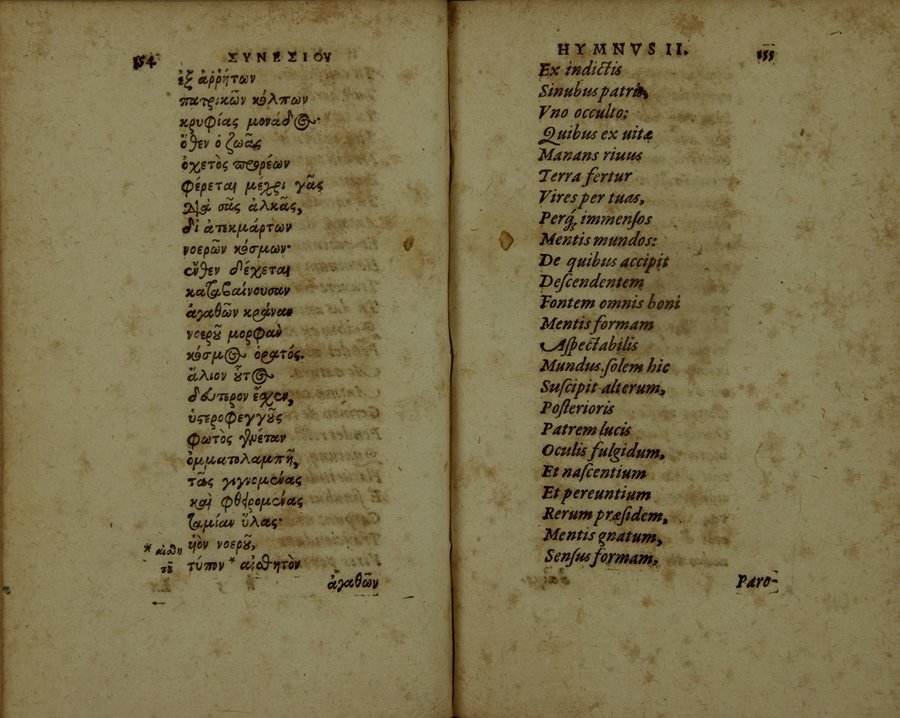 154 ΣΥΝΕΣΙΟΥ
ἐξ ἀῤῥήτων
πατρικῶν κόλπων
κρυφίας μονάδος·
ὅθεν ὁ ζωᾶς
ὀχετὸς προρέων
φέρεται μέχρι γᾶς
διὰ σᾶς ἀλκᾶς,
δι᾽ ἀτεκμάρτων
νοερῶν κόσμων·
ἔνθεν δέχεται
καταβαίνουσαν
ἀγαθῶν κράναν
νοεροῦ μορφὰν
κόσμος ὁρατός.
ἅλιον οὗτος
δεύτερον ἔχειν,
ὑστεροφεγγοῦς
φωτὸς γενέταν
ὀμματολαμπῆ,
τᾶς γιγνομένας
καὶ φθειρομένας
ταμίαν ὕλας·
υἱὸν νοεροῦ,
* αἰσθη
τοῦ
τύπον * αἰσθητὸν
ἀγαθῶν
HYMNVS II. 155
Ex indictis
Sinubus patris,
Vno occulto:
Quibus ex uitæ
Manans riuus
Terra fertur
Vires per tuas,
Perq́; immensos
Mentis mundos:
De quibus accipit
Descendentem
Fontem omnis boni
Mentis formam
Aspectabilis
Mundus. solem hic
Suscipit alterum,
Posterioris
Patrem lucis
Oculis fulgidum,
Et nascentium
Et pereuntium
Rerum præsidem,
Mentis gnatum,
Sensus formam,
Paro-